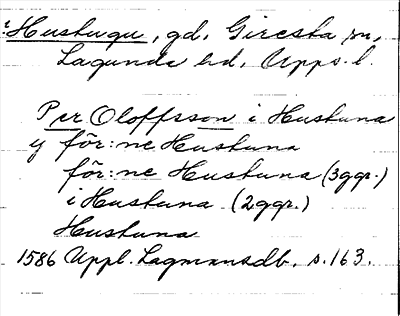 i Hustuqu, gd, Giresta sn,
Lagunda hd, Upps. l.
Per Oloffsson i Hustuna
ij för:ne Hustuna
för:ne Hustuna (3ggr.)
i Hustuna (2ggr.)
Hustuna
1586 Uppl. Lagmansdb. s.163.